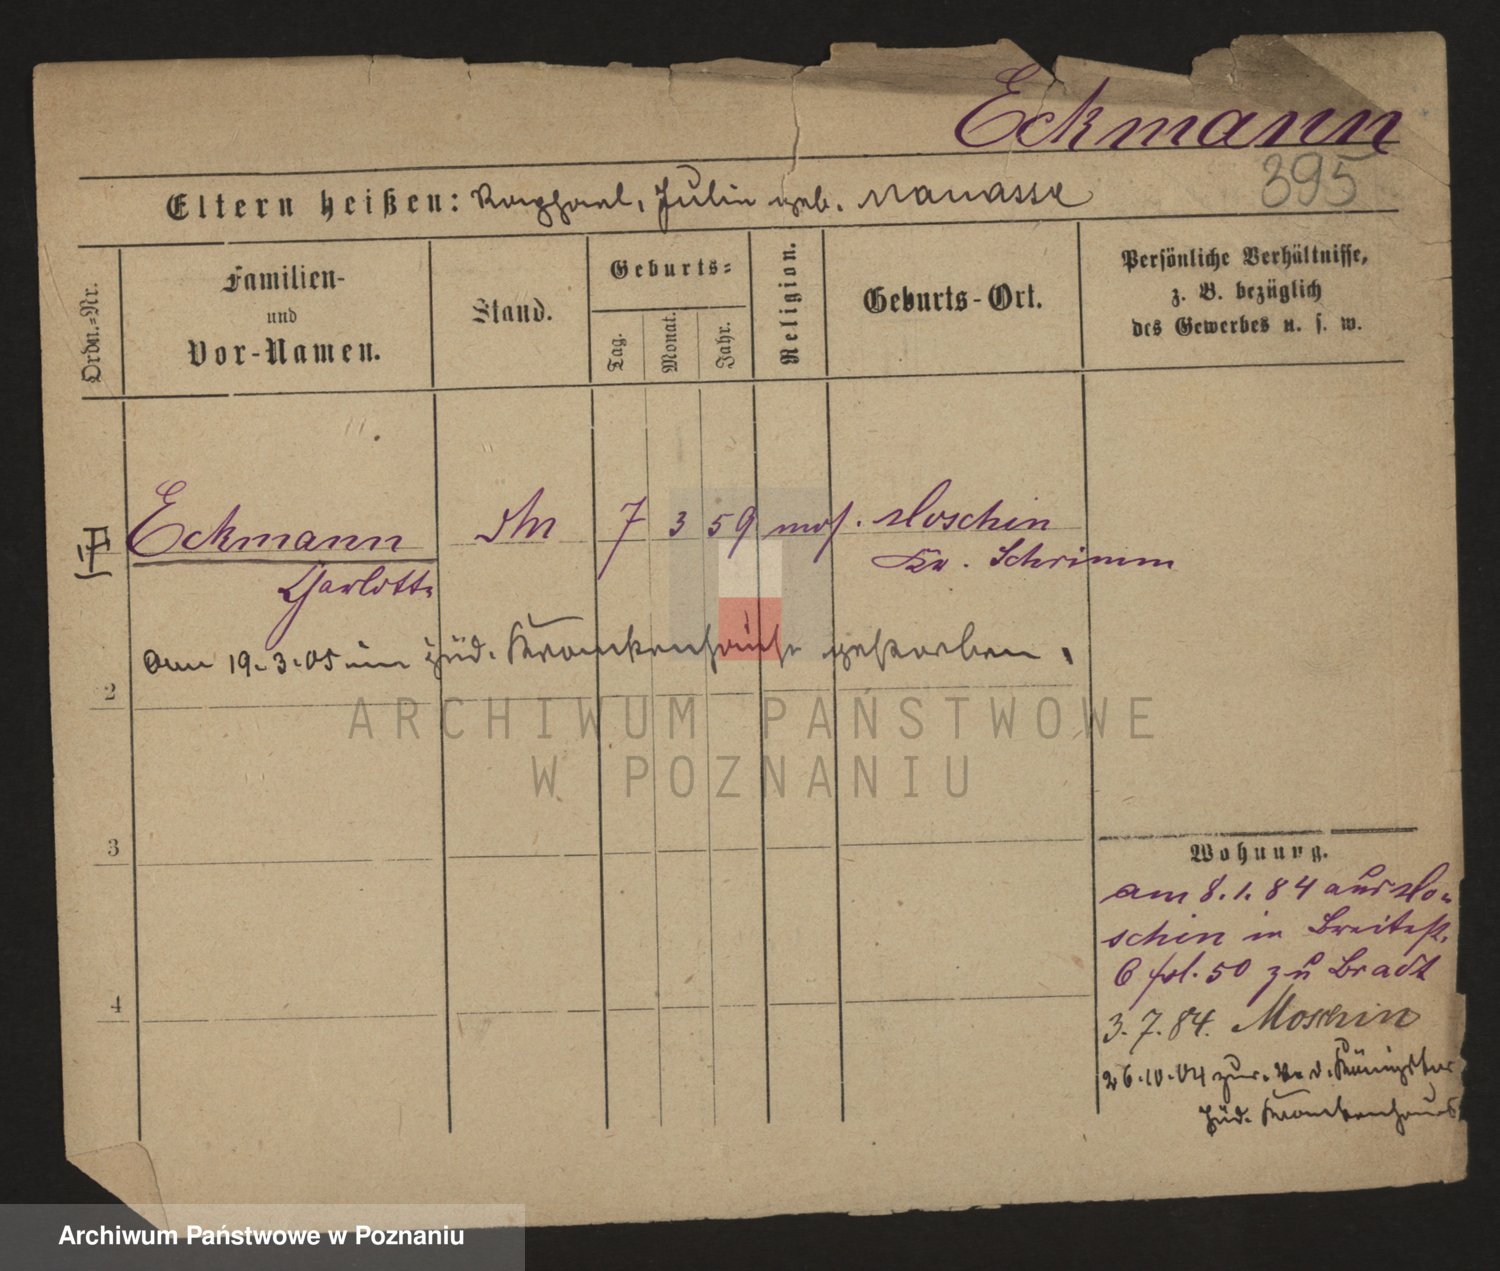 Eckmann
395
Eltern heißen: Raphael, Julie geb. Manasse
Ordn.-Nr.
Familien-
und
Vor-Namen.
Stand.
Geburts-
Tag.
Monat.
Jahr.
Religion.
Geburts-Ort.
Persönliche Verhältnisse,
z. B. bezüglich
des Gewerbes u. s. w.
Eckmann
7 3 59 mos. Moschin
Kr. Schrimm
Charlotte
Am 19.3.05 im jüd. Krankenhause gestorben.
2
3
4
Wohnung.
am 8.1.84 aus Mo-
schin in Breitestr.
6 pol. 50 zu Bradt
3.7.84. Moschin
26.10.04 zur. v. d. Königstor
jüd. Krankenhaus
ARCHIWUM PAŃSTWOWE
W POZNANIU
Archiwum Państwowe w Poznaniu